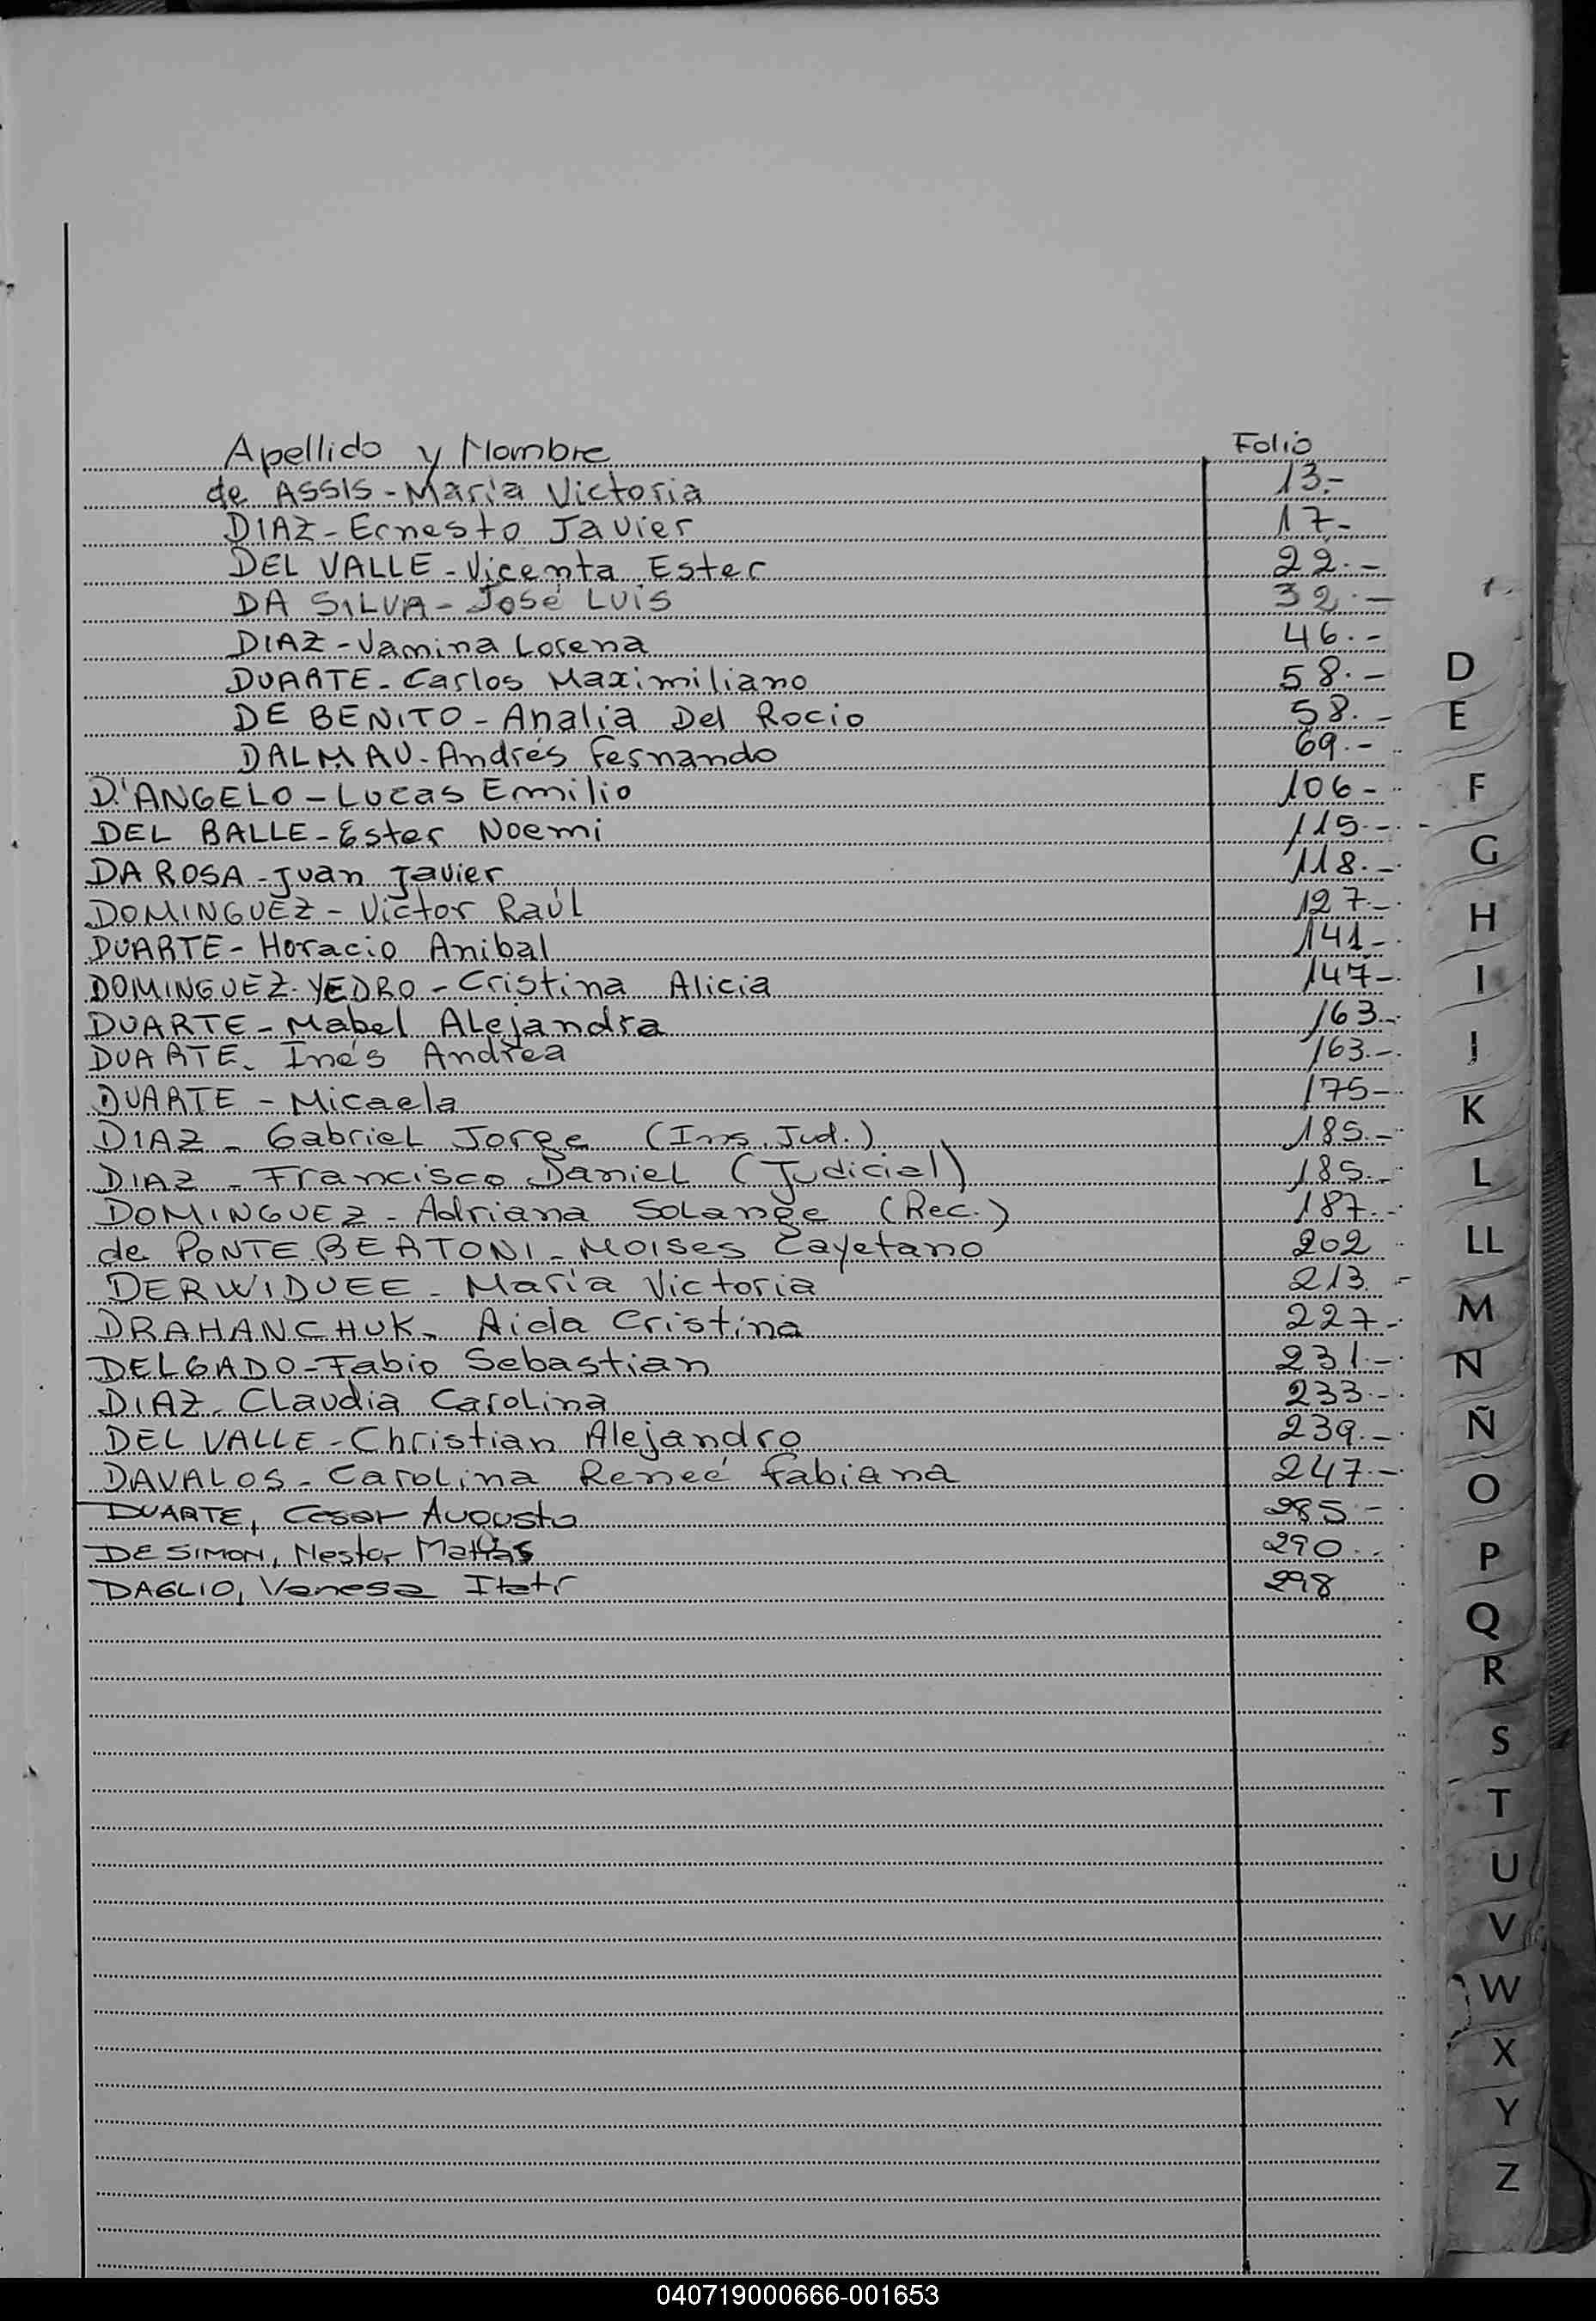 Apellido y Nombre Folio
de ASSIS - María Victoria 13.-
DIAZ - Ernesto Javier 17.-
DEL VALLE - Vicenta Ester 22.-
DA SILVA - José Luis 32.-
DIAZ - Vamina Lorena 46.-
DUARTE - Carlos Maximiliano 58.-
DE BENITO - Analia Del Rocio 58.-
DALMAU - Andrés Fernando 69.-
D'ANGELO - Lucas Emilio 106-
DEL BALLE - Ester Noemi 115.-
DA ROSA - Juan Javier 118.-
DOMINGUEZ - Victor Raúl 127.-
DUARTE - Horacio Anibal 141-
DOMINGUEZ YEDRO - Cristina Alicia 147-
DUARTE - Mabel Alejandra 163.-
DUARTE - Inés Andrea 163.-
DUARTE - Micaela 175-
DIAZ - Gabriel Jorge (Ins. Jud.) 185.-
DIAZ - Francisco Daniel (Judicial) 185.-
DOMINGUEZ - Adriana Solange (Rec.) 187.-
de PONTE BERTONI - Moises Cayetano 202
DERWIDUEE - María Victoria 213.-
DRAHANCHUK - Aida Cristina 227-
DELGADO - Fabio Sebastian 231.-
DIAZ - Claudia Carolina 233.-
DEL VALLE - Christian Alejandro 239.-
DAVALOS - Carolina Reneé Fabiana 247.-
DUARTE, Cesar Augusto 285-
DE SIMON, Nestor Matías 290.-
DAGLIO, Vanesa Itatí 298
D
E
F
G
H
I
J
K
L
LL
M
N
Ñ
O
P
Q
R
S
T
U
V
W
X
Y
Z
040719000666-001653